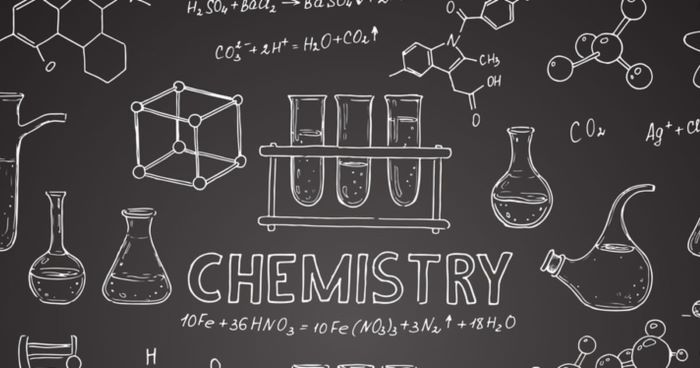 H₂SO₄ + BaCl₂ → BaSO₄↓ + 2
CO₃²⁻ + 2H⁺ = H₂O + CO₂↑
O
N
CH₃
OH
O
O
CO₂
Ag⁺ + Cl
CHEMISTRY
10Fe + 36HNO₃ = 10Fe(NO₃)₃ + 3N₂↑ + 18H₂O
H